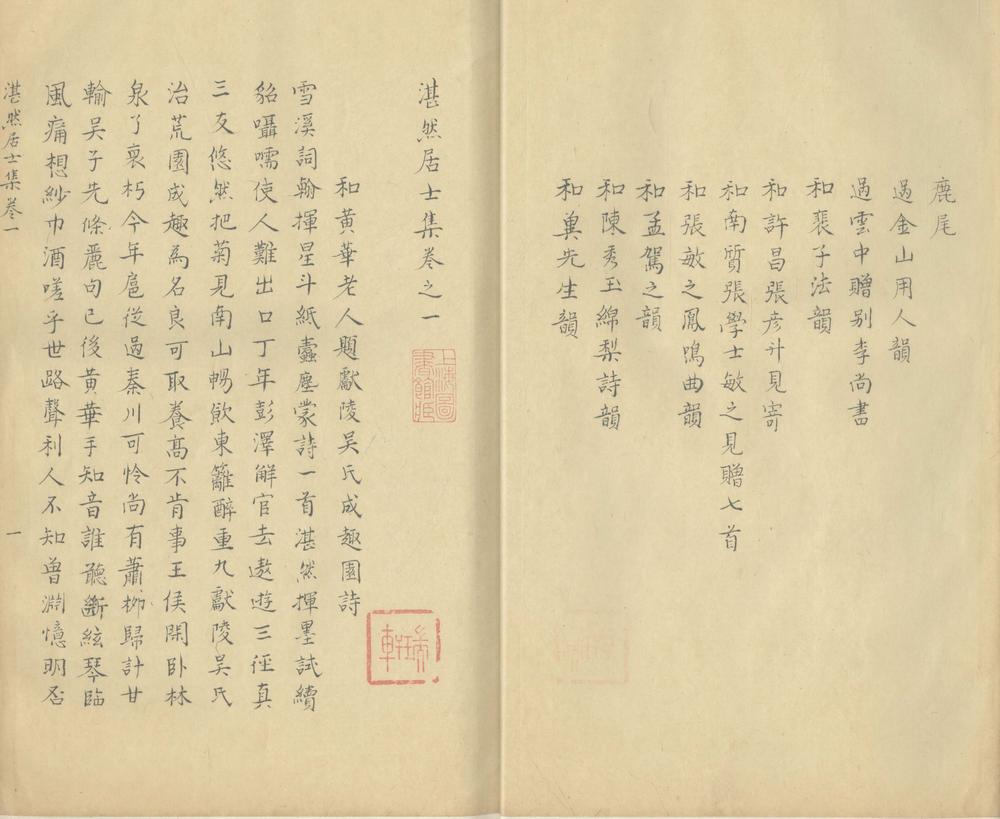 鹿尾
過金山用人韻
過雲中贈别李尚書
和裴子法韻
和許昌張彦升見寄
和南質張學士敏之見贈七首
和張敏之鳳鳴曲韻
和孟駕之韻
和陳秀玉綿梨詩韻
和冀先生韻
湛然居士集卷之一
和黄華老人題獻陵吴氏成趣園詩
雪溪詞翰揮星斗紙蠧塵蒙詩一首湛然揮墨試續
貂囁嚅使人難出口丁年彭澤解官去遨遊三徑真
三友悠然把菊見南山暢飲東籬醉重九獻陵吴氏
治荒園成趣為名良可取養髙不肯事王侯閑卧林
泉了衰朽今年扈從過秦川可怜尚有蕭栁歸計甘
輸吴子先條麗句已後黄華手知音誰聽斷絃琴臨
風痛想紗巾酒嗟乎世路聲利人不知曽淵憶明否
湛然居士集卷一
一
上海圖書館藏